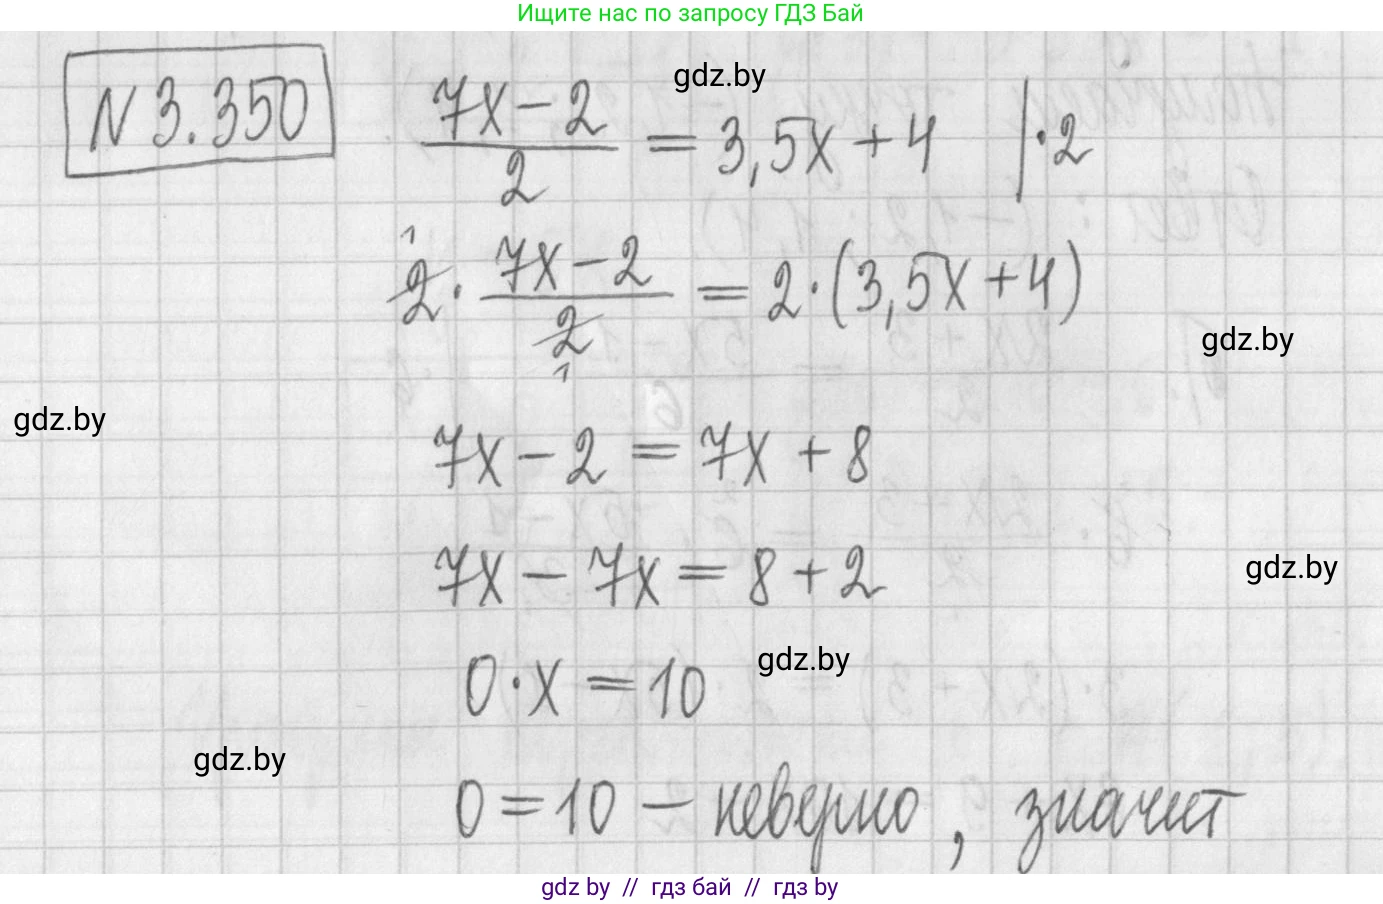 Ищите нас по запросу ГДЗ Бай
N 3.350
(7x-2)/2 = 3,5x+4 |·2
gdz.by
2·(7x-2)/2 = 2·(3,5x+4)
1
1
gdz.by
gdz.by
7x-2=7x+8
7x-7x=8+2
gdz.by
0·x=10
gdz.by
gdz.by
0=10 — неверно, значит
gdz by // гдз бай // гдз by